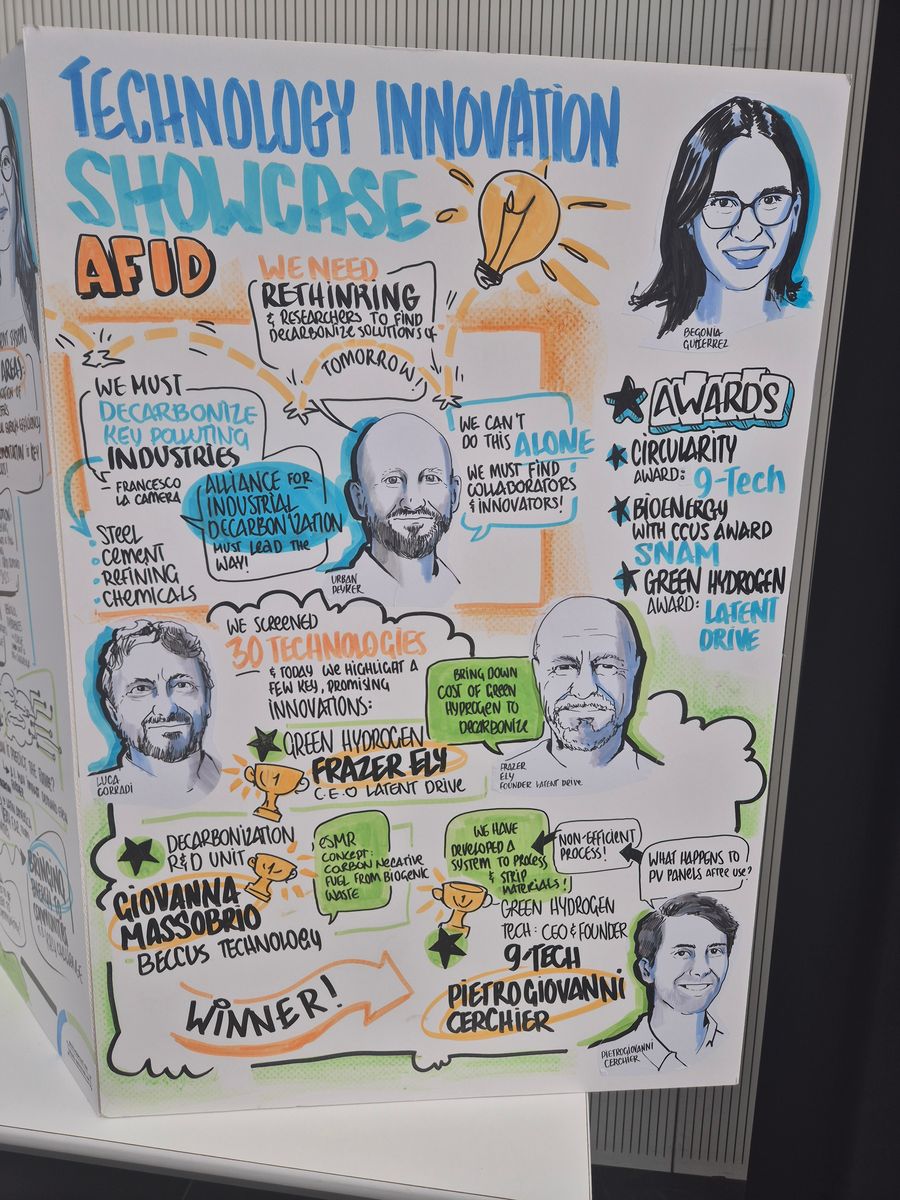 TECHNOLOGY INNOVATION
SHOWCASE
AFID
WE NEED
RETHINKING
& RESEARCHERS TO FIND
DECARBONIZE SOLUTIONS OF
TOMORROW!
BEGONIA
GUTIERREZ
WE MUST
DECARBONIZE
KEY POLLUTING
INDUSTRIES
- FRANCESCO
LA CAMERA
STEEL
CEMENT
REFINING
CHEMICALS
ALLIANCE FOR
INDUSTRIAL
DECARBONIZATION
MUST LEAD THE
WAY!
URBAN
WE CAN'T
DO THIS ALONE
WE MUST FIND
COLLABORATORS
& INNOVATORS!
AWARDS
CIRCULARITY
AWARD: 9-Tech
BIOENERGY
WITH CCUS AWARD
SNAM
GREEN HYDROGEN
AWARD: LATENT
DRIVE
WE SCREENED
30 TECHNOLOGIES
& TODAY WE HIGHLIGHT A
FEW KEY, PROMISING
INNOVATIONS:
LUCA
CORRADI
GREEN HYDROGEN
FRAZER ELY
C.E.O LATENT DRIVE
BRING DOWN
COST OF GREEN
HYDROGEN TO
DECARBONIZE
FRAZER
ELY
FOUNDER LATENT DRIVE
DECARBONIZATION
R&D UNIT
GIOVANNA
MASSOBRIO
BECCUS TECHNOLOGY
eSMR
CONCEPT:
CARBON NEGATIVE
FUEL FROM BIOGENIC
WASTE
WE HAVE
DEVELOPED A
SYSTEM TO PROCESS
& STRIP
MATERIALS!
NON-EFFICIENT
PROCESS!
WHAT HAPPENS TO
PV PANELS AFTER USE?
GREEN HYDROGEN
TECH: CEO & FOUNDER
9-TECH
PIETROGIOVANNI
CERCHIER
WINNER!
PIETROGIOVANNI
CERCHIER